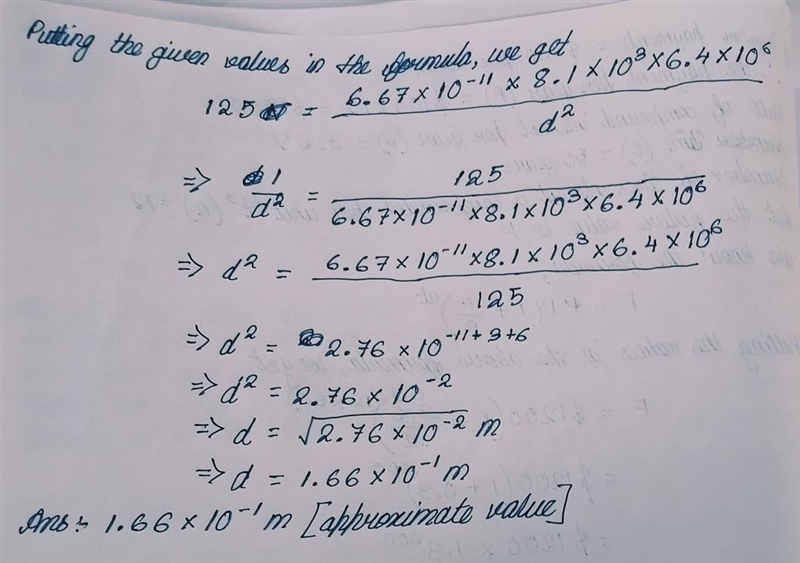 Putting the given values in the formula, we get
125 = 6.67 × 10⁻¹¹ × 8.1 × 10³ × 6.4 × 10⁶ / d²
⇒ 1/d² = 125 / 6.67 × 10⁻¹¹ × 8.1 × 10³ × 6.4 × 10⁶
⇒ d² = 6.67 × 10⁻¹¹ × 8.1 × 10³ × 6.4 × 10⁶ / 125
⇒ d² = 2.76 × 10⁻¹¹⁺³⁺⁶
⇒ d² = 2.76 × 10⁻²
⇒ d = √2.76 × 10⁻² m
⇒ d = 1.66 × 10⁻¹ m
Ans: 1.66 × 10⁻¹ m [approximate value]